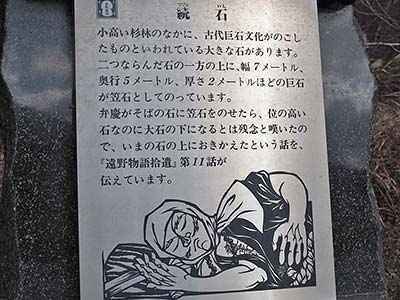 続石
つづき いし
小高い杉林のなかに、古代巨石文化がのこし
たものといわれている大きな石があります。
二つならんだ石の一方の上に、幅7メートル、
奥行5メートル、厚さ2メートルほどの巨石
が笠石としてのっています。
弁慶がそばの石に笠石をのせたら、位の高い
石なのに大石の下になるとは残念と嘆いたの
で、いまの石の上におきかえたという話を、
『遠野物語拾遺』第11話が
伝えています。